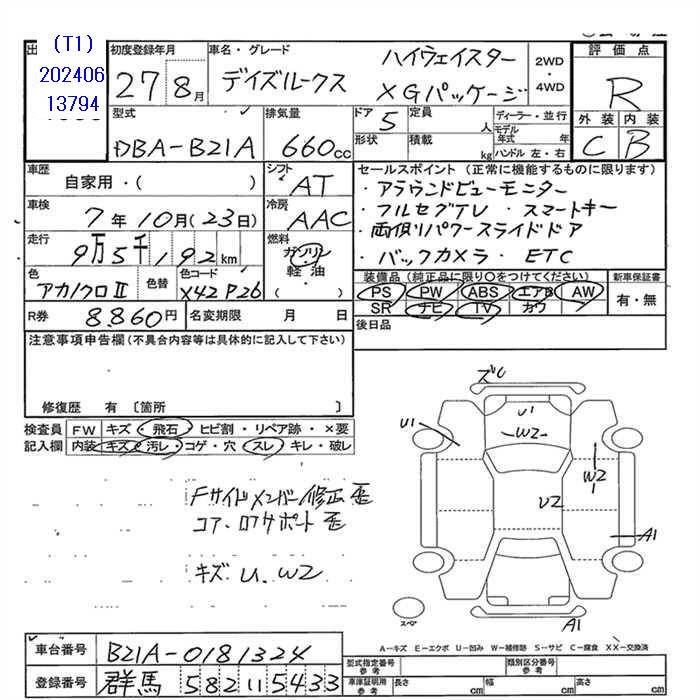 出
(T1)
202406
13794
初度登録年月
27 8月
車名・グレード
デイズルークス
ハイウェイスター
XGパッケージ
2WD
・
4WD
評価点
R
外装 内装
C B
型式
DBA-B21A
排気量
660cc
ドア
5
形状
定員
人
積載
kg
ディーラー・並行
モデル
年式 年
ハンドル 左・右
車歴
自家用・( )
シフト
AT
車検
7年10月(23日)
冷房
AAC
走行
9万5千192km
燃料
ガソリン
軽油
・( )
色
アカ/クロⅡ
色替
色コード
X42 P26
R券
8.860円
名変期限 月 日
セールスポイント (正常に機能するものに限ります)
・アラウンドビューモニター
・フルセグTV・スマートキー
・両側パワースライドドア
・バックカメラ・ETC
装備品(純正品に限り○をつけてください)
PS PW ABS エアB AW
SR ナビ TV カワ
新車保証書
有・無
後日品
注意事項申告欄(不具合内容等は具体的に記入して下さい)
修復歴 有〔箇所 〕
検査員
記入欄
FW キズ・飛石・ヒビ割・リペア跡・×要
内装 キズ・汚レ・コゲ・穴・スレ・キレ・破レ
Fサイドメンバー修正歪
コア・ロアサポート歪
キズ U.W2
ズレ
U1
U1
W2
W2
U2
A1
A1
スペア
A-キズ E-エクボ U-凹み W-補修跡 S-サビ C-腐食 XX-交換済
車台番号
B21A-0181324
登録番号
群馬 582 い 5433
型式指定番号
参考
類別区分番号
参考
車庫証明用
参考
長さ cm
幅 cm
高さ cm